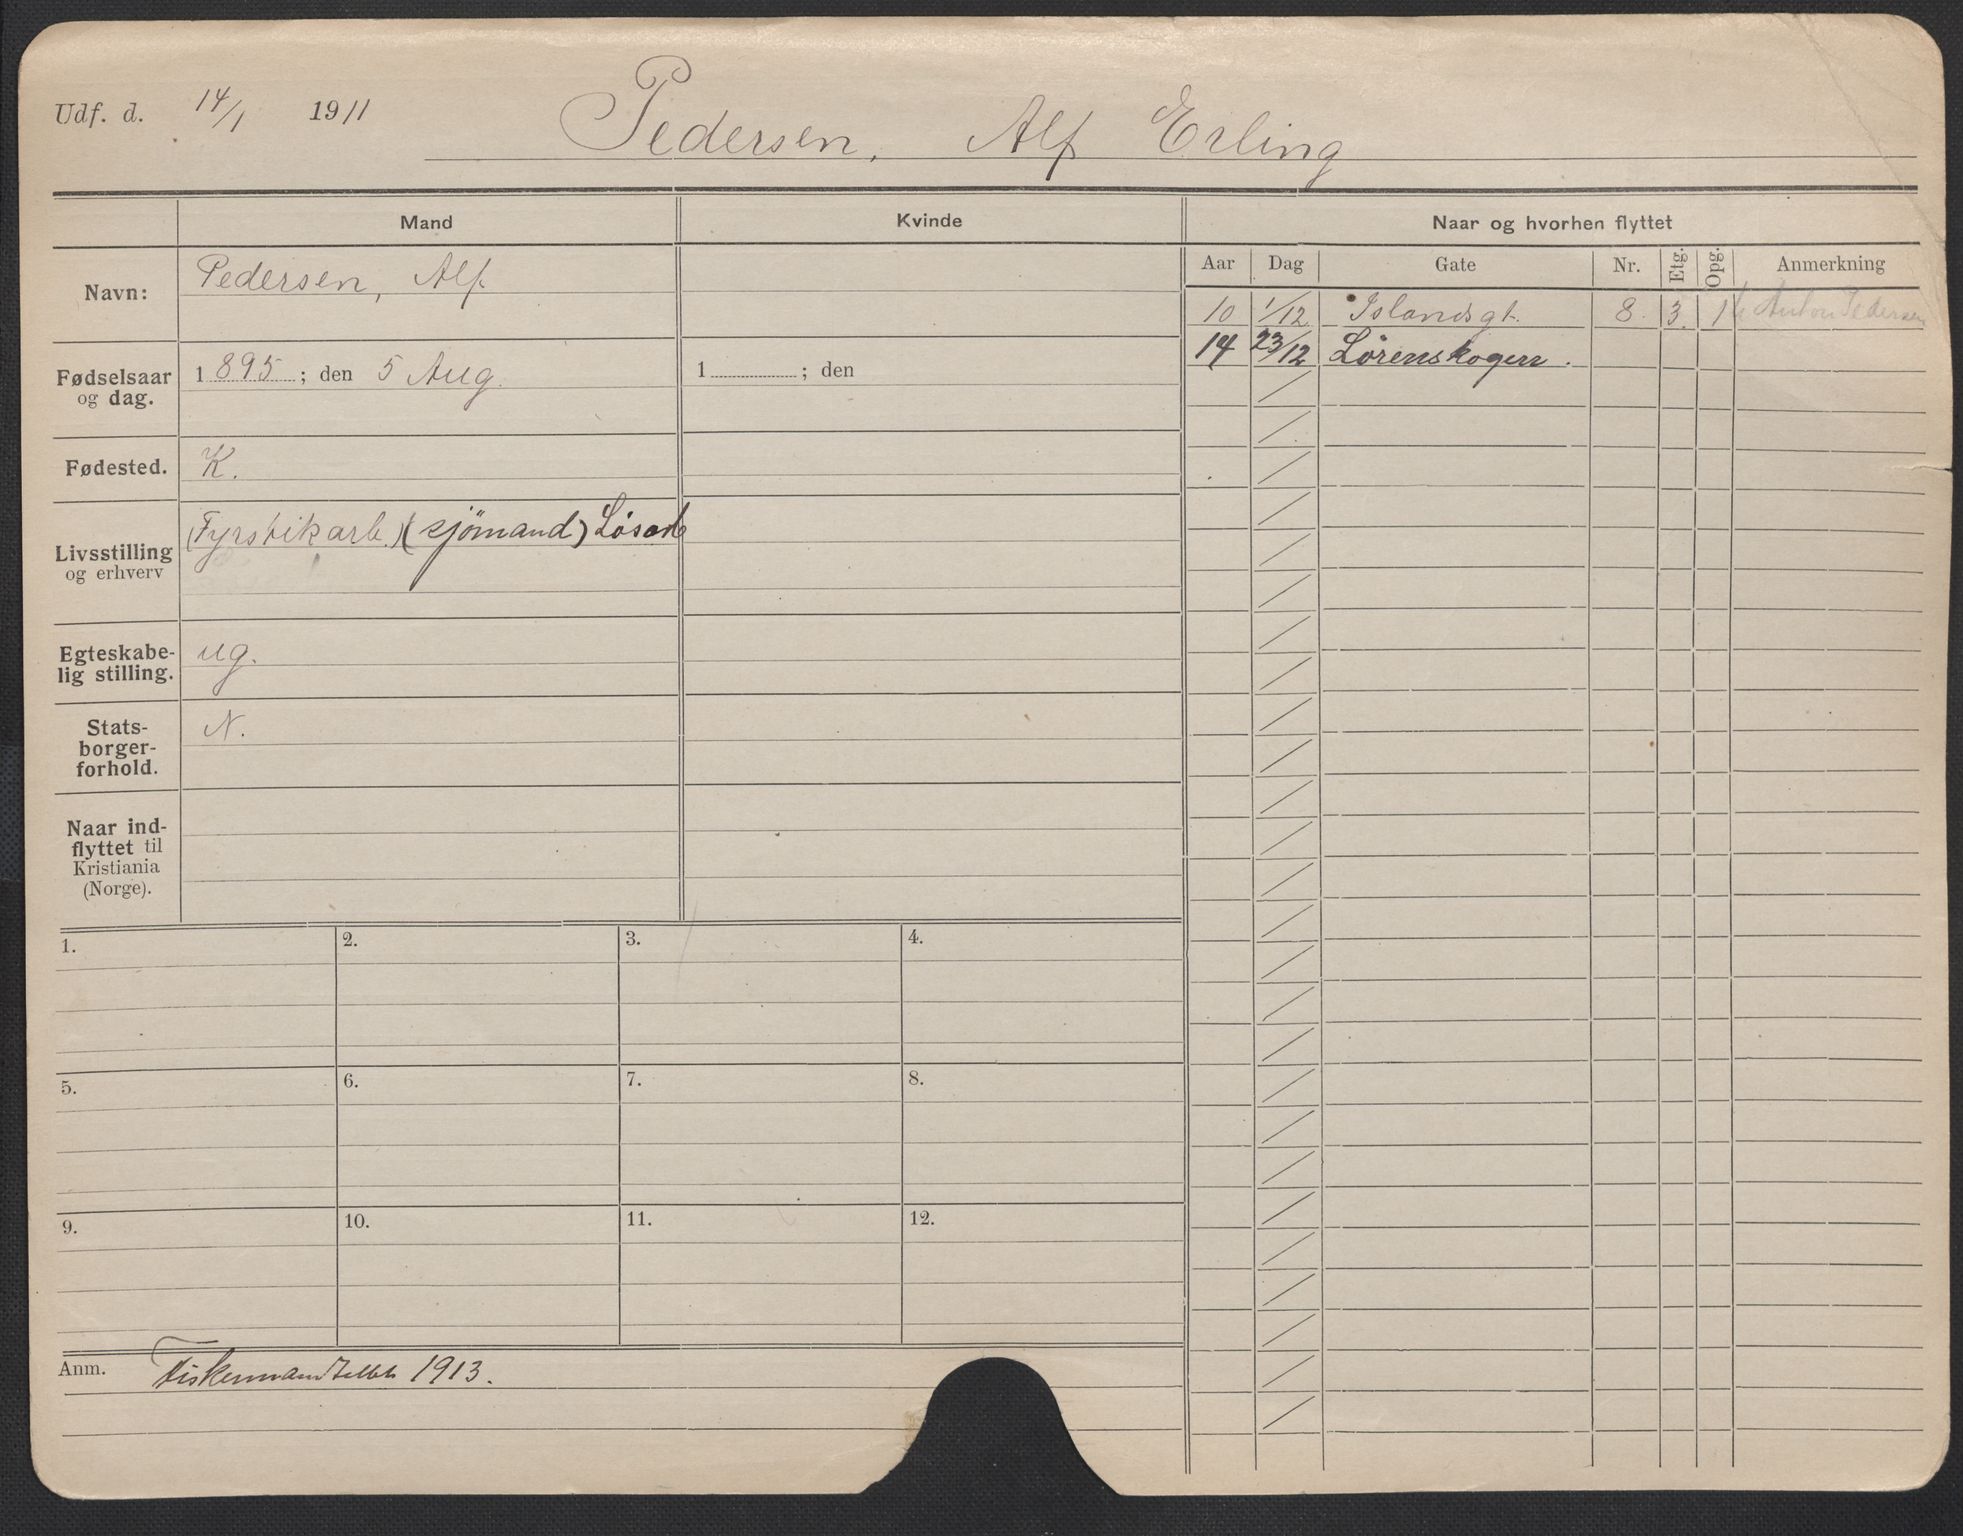 Udf. d. 14/1 1911 Pedersen, Alf Erling
Mand Kvinde Naar og hvorhen flyttet
Aar Dag Gate Nr. Etg. Opg. Anmerkning
Navn: Pedersen, Alf
10 1/12 Islandsgt. 8. 3. Anton Pedersen
14 23/12 Lörenskogen.
Fødselsaar og dag. 1895; den 5 Aug. 1 ; den
Fødested. K.
Livsstilling og erhverv (Fyrstikarb.) (sjömand) Løsarb
Egteskabe-
lig stilling. ug.
Stats-
borger-
forhold. N.
Naar ind-
flyttet til
Kristiania
(Norge).
1. 2. 3. 4.
5. 6. 7. 8.
9. 10. 11. 12.
Anm. 1913.